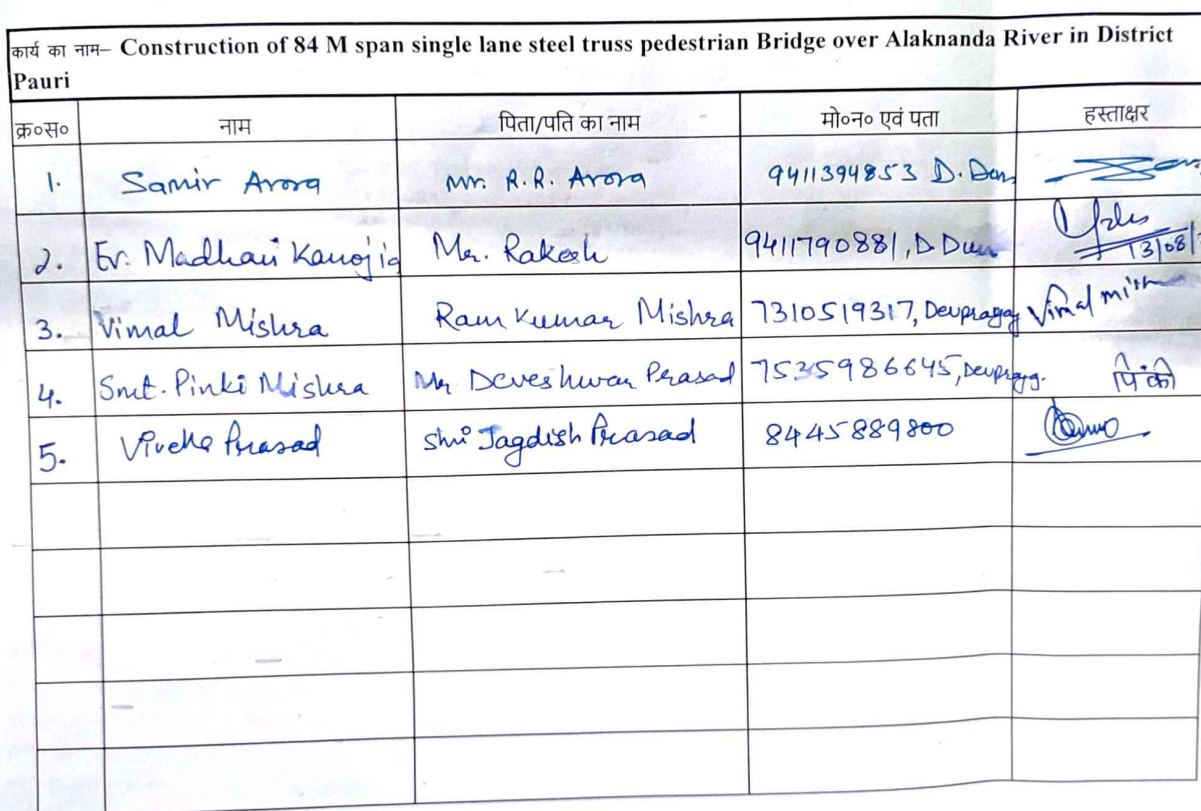 कार्य का नाम– Construction of 84 M span single lane steel truss pedestrian Bridge over Alaknanda River in District
Pauri
क्र०स० नाम पिता/पति का नाम मो०न० एवं पता हस्ताक्षर
1. Samir Arora Mr. R.R. Arora 9411394853 D.Dun
2. Er. Madhavi Kanojia Mr. Rakesh 9411790881, D Dun 13/08/
3. Vimal Mishra Ram Kumar Mishra 7310519317, Devprayag Vimal
4. Smt. Pinki Mishra Mr Deveshwar Prasad 7535986645, Devprayg. पिंकी
5. Prasad Shri Jagdish Prasad 8445889800